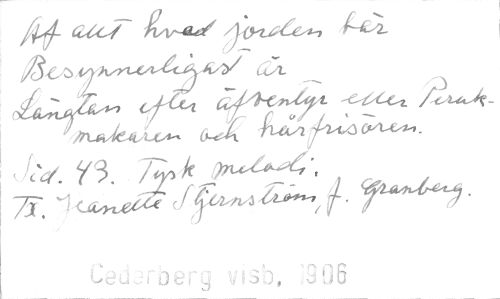 Af allt hvad jorden bär
Besynnerligast är
Längtan efter äfventyr eller Peruk-
makaren och hårfrisören.
Sid. 43. Tysk melodi.
Tx. Jeanette Stjernström, f. Granberg.
Cederberg visb. 1906